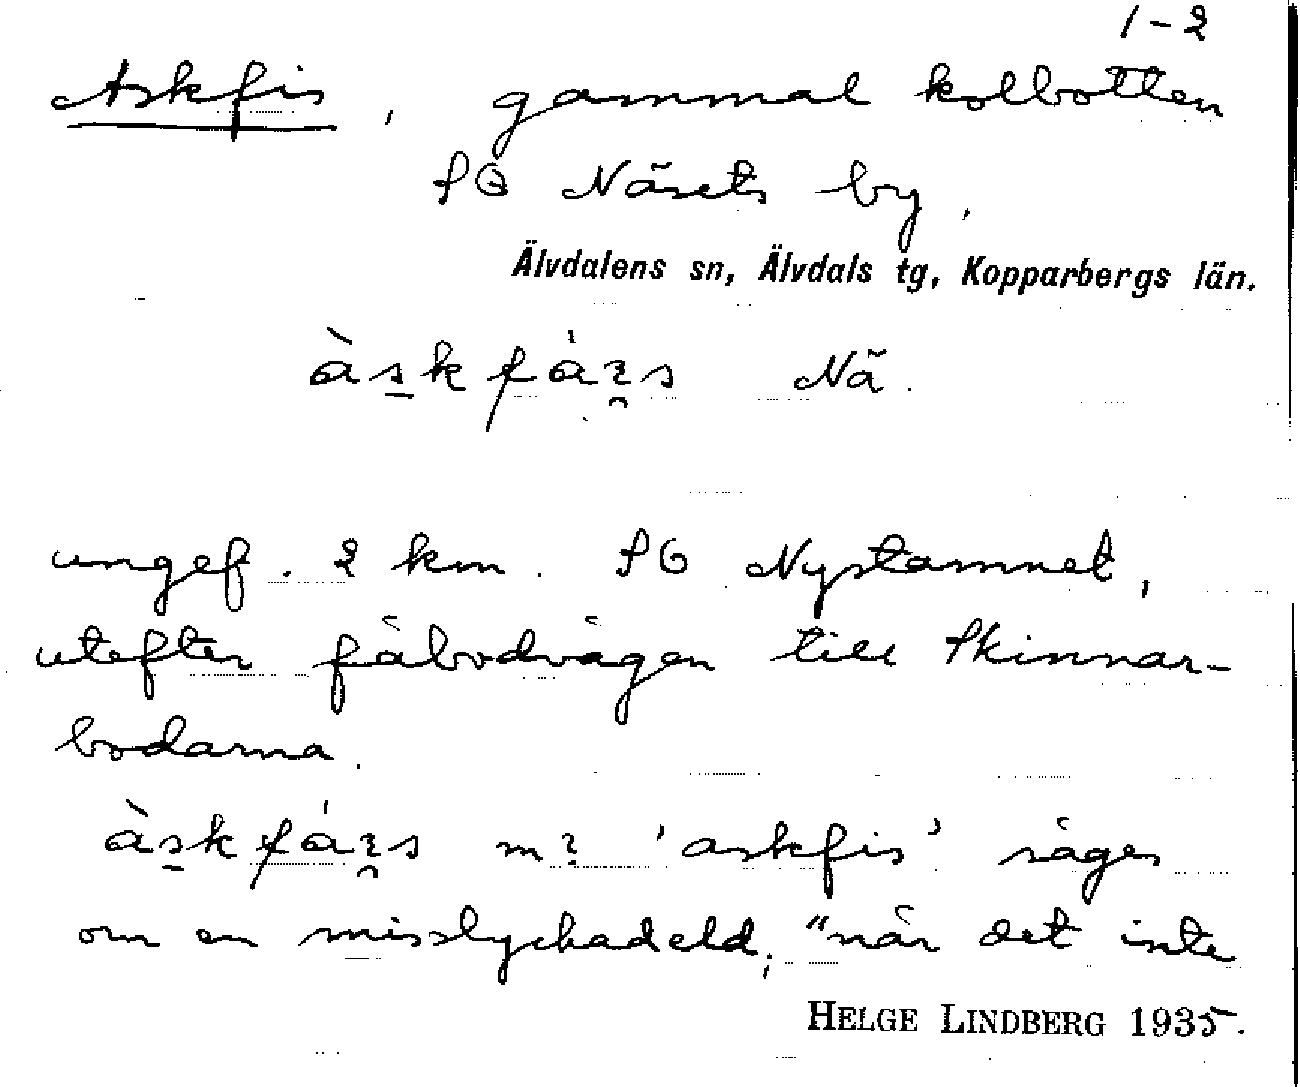 1-2
Askfis, gammal kolbotten
SÖ Näsets by,
Älvdalens sn, Älvdals tg, Kopparbergs län.
Nä.
ungef. 2 km. SÖ Nystamnet,
utefter fäbodvägen till Skinnar-
bodarna.
m? 'askfis' säges
om en misslyckad eld; "när det inte
HELGE LINDBERG 1935.